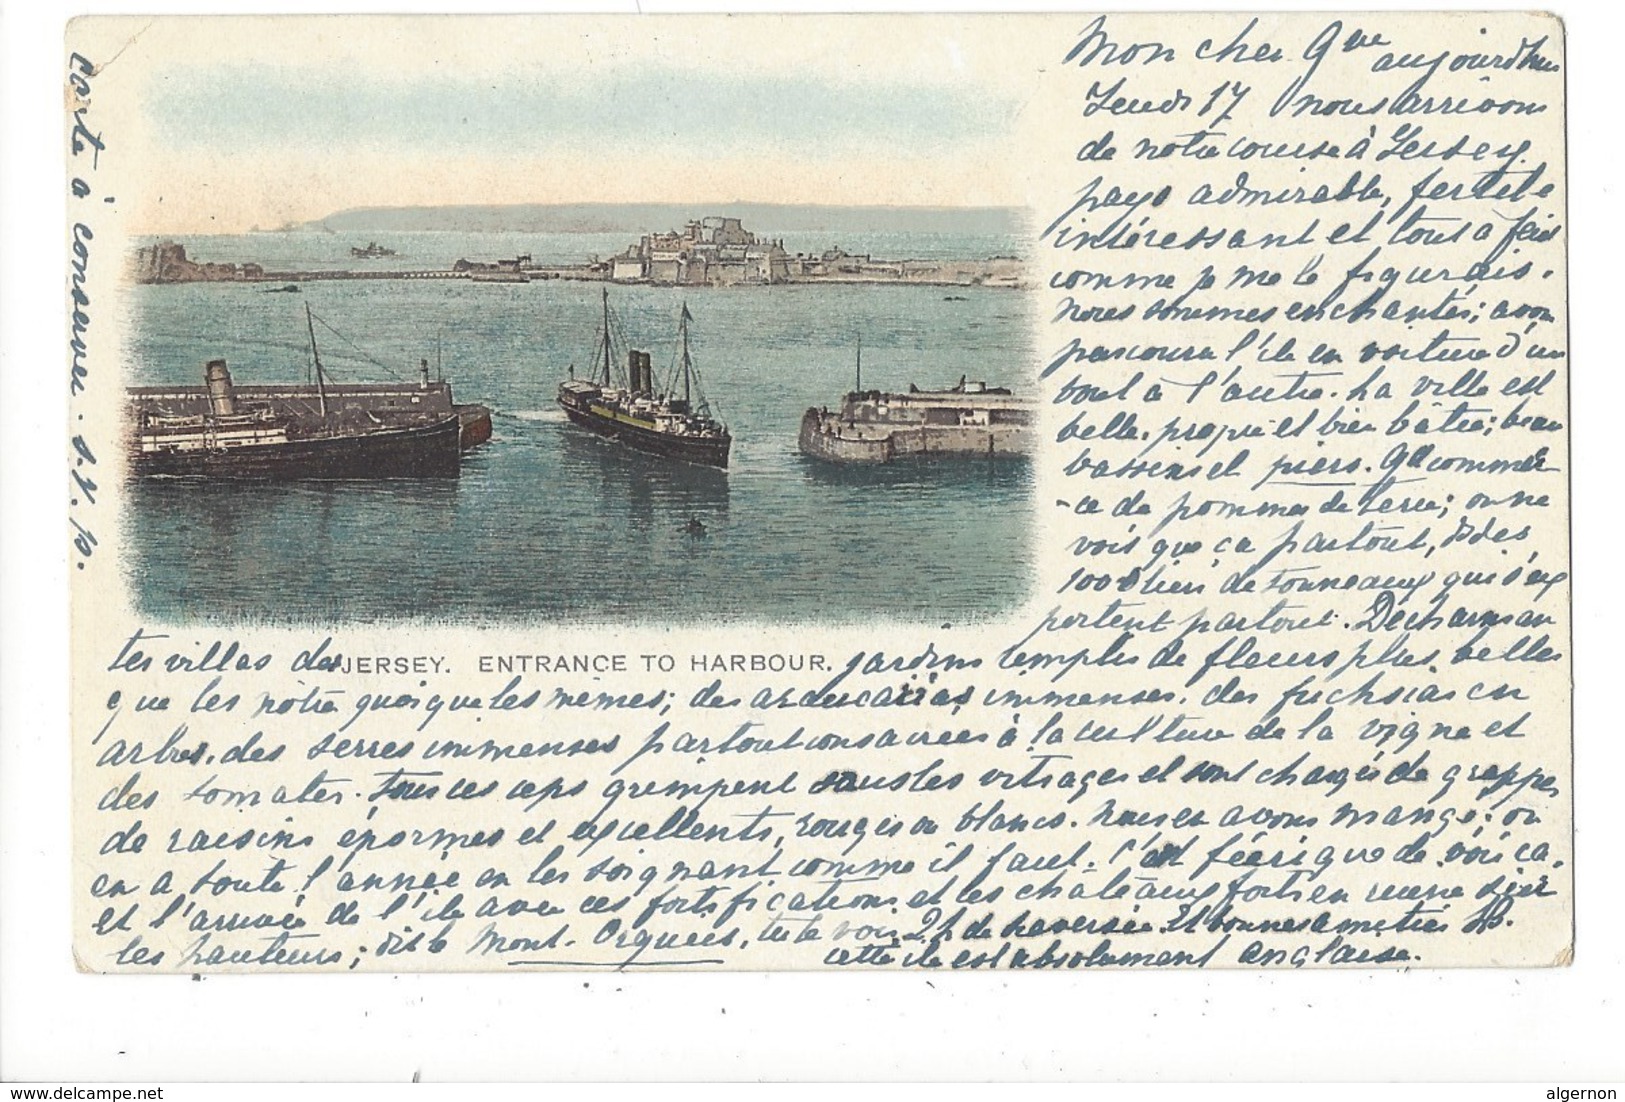 carte à conserver. s.v.p.
Mon cher aujourd'hui
Jeudi 17 nous arrivons
de notre course à Jersey
pays admirable, fertile
intéressant et tout à fait
comme je me le figurais.
nous sommes enchantés; avons
parcouru l'île en voiture d'un
bout à l'autre. La ville est
belle, propre et bien bâtie; beau
bassins et piers. Gd commer
-ce de pommes de terre; on ne
vois que ça partout,
de tonneaux qui s'ex
portent partout. De charman
tes villas des jardins remplis de fleurs plus belles
JERSEY. ENTRANCE TO HARBOUR.
que les nôtre quoique les mêmes; des araucarias immenses. des fuchsias en
arbres, des serres immenses partout consacrées à la culture de la vigne et
des tomates. tous ces ceps grimpent sous les vitrages et sont chargés de grappes
de raisins énormes et excellents, rouges ou blancs. Nous en avons mangé; on
en a toute l'année en les soignant comme il faut. C'est féerique de voir ça,
et l'arrivée de l'île avec ces fortifications et ces châteaux forts en ruine sur
les hauteurs; dit le Mont-Orgueil, tu le vois 2h de traversée. Et bonnes amitiés
cette île est absolument anglaise.
algernon